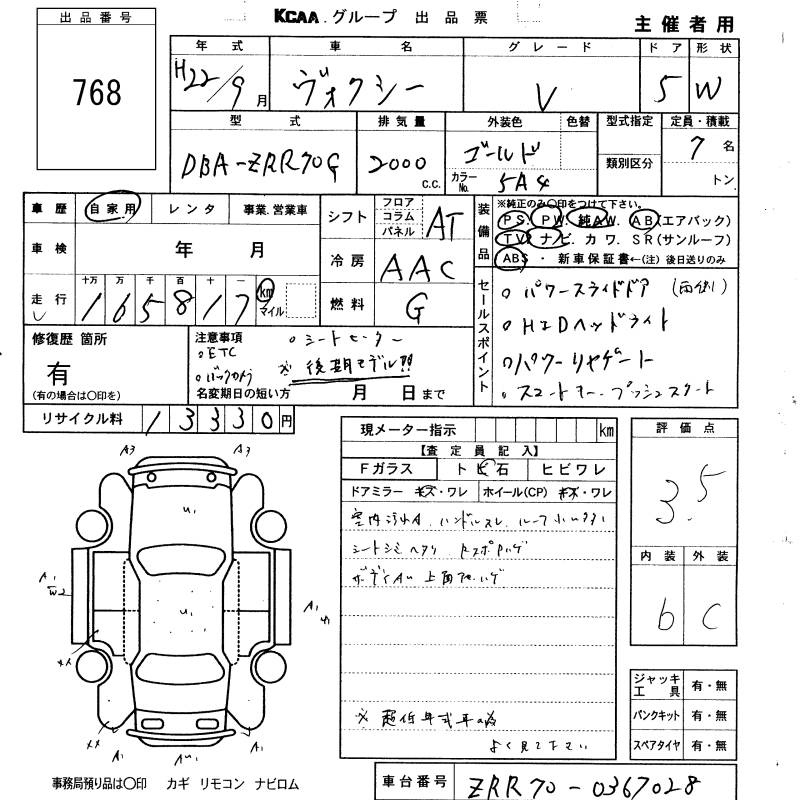 出品番号
768
KCAA グループ 出品票
主催者用
年式 車名 グレード ドア 形状
H22/9月 ヴォクシー V 5 W
型式 排気量 外装色 色替 型式指定 定員・積載
DBA-ZRR70G 2000 c.c. ゴールド 7名
カラーNo. 5A4 類別区分 トン
車歴 自家用 レンタ 事業.営業車
車検 年 月
走行 十万 万 千 百 十 一
165817 km マイル
シフト フロア コラム パネル AT
冷房 AAC
燃料 G
装備品
※純正のみ〇印をつけて下さい。
PS. PW. 純AW. AB(エアバック)
TV. ナビ. カワ. SR(サンルーフ)
ABS ・ 新車保証書←(注)後日送りのみ
セールスポイント
パワースライドドア (両側)
HIDヘッドライト
パワーリヤゲート
スマートキー.プッシュスタート
修復歴 箇所
有
(有の場合は〇印を)
注意事項
シートヒーター
ETC
※ 後期モデル!!
バックカメラ
名変期日の短い方 月 日まで
リサイクル料 13330円
現メーター指示 km
【査定員記入】
Fガラス トビ石 ヒビワレ
ドアミラー キズ・ワレ ホイール(CP) キズ・ワレ
室内汚れ ハンドルスレ
シートシミ
ボディAU 上面
※ 超低年式車の為
よく見て下さい
評価点
3.5
内装 外装
b C
ジャッキ工具 有・無
パンクキット 有・無
スペアタイヤ 有・無
A3 A3
U1
A1 W2 U1 A1 U1
XX
XX A1 AU1 A1
事務局預り品は〇印 カギ リモコン ナビロム
車台番号 ZRR70-0367028